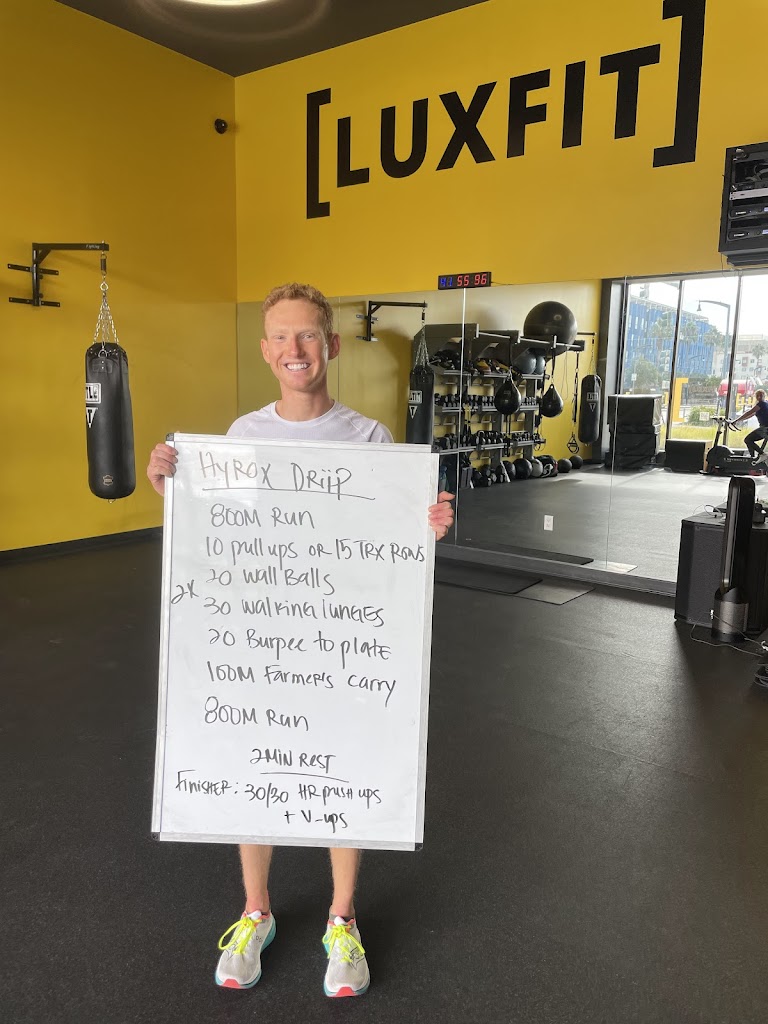 [LUXFIT]
55 96
HYROX DRIIP
800M RUN
10 pull ups or 15 TRX ROWS
20 Wall Balls
2x 30 walking lunges
20 Burpee to plate
100M Farmers carry
800M RUN
2 MIN REST
FINISHER: 30/30 HR push ups
+ V-ups